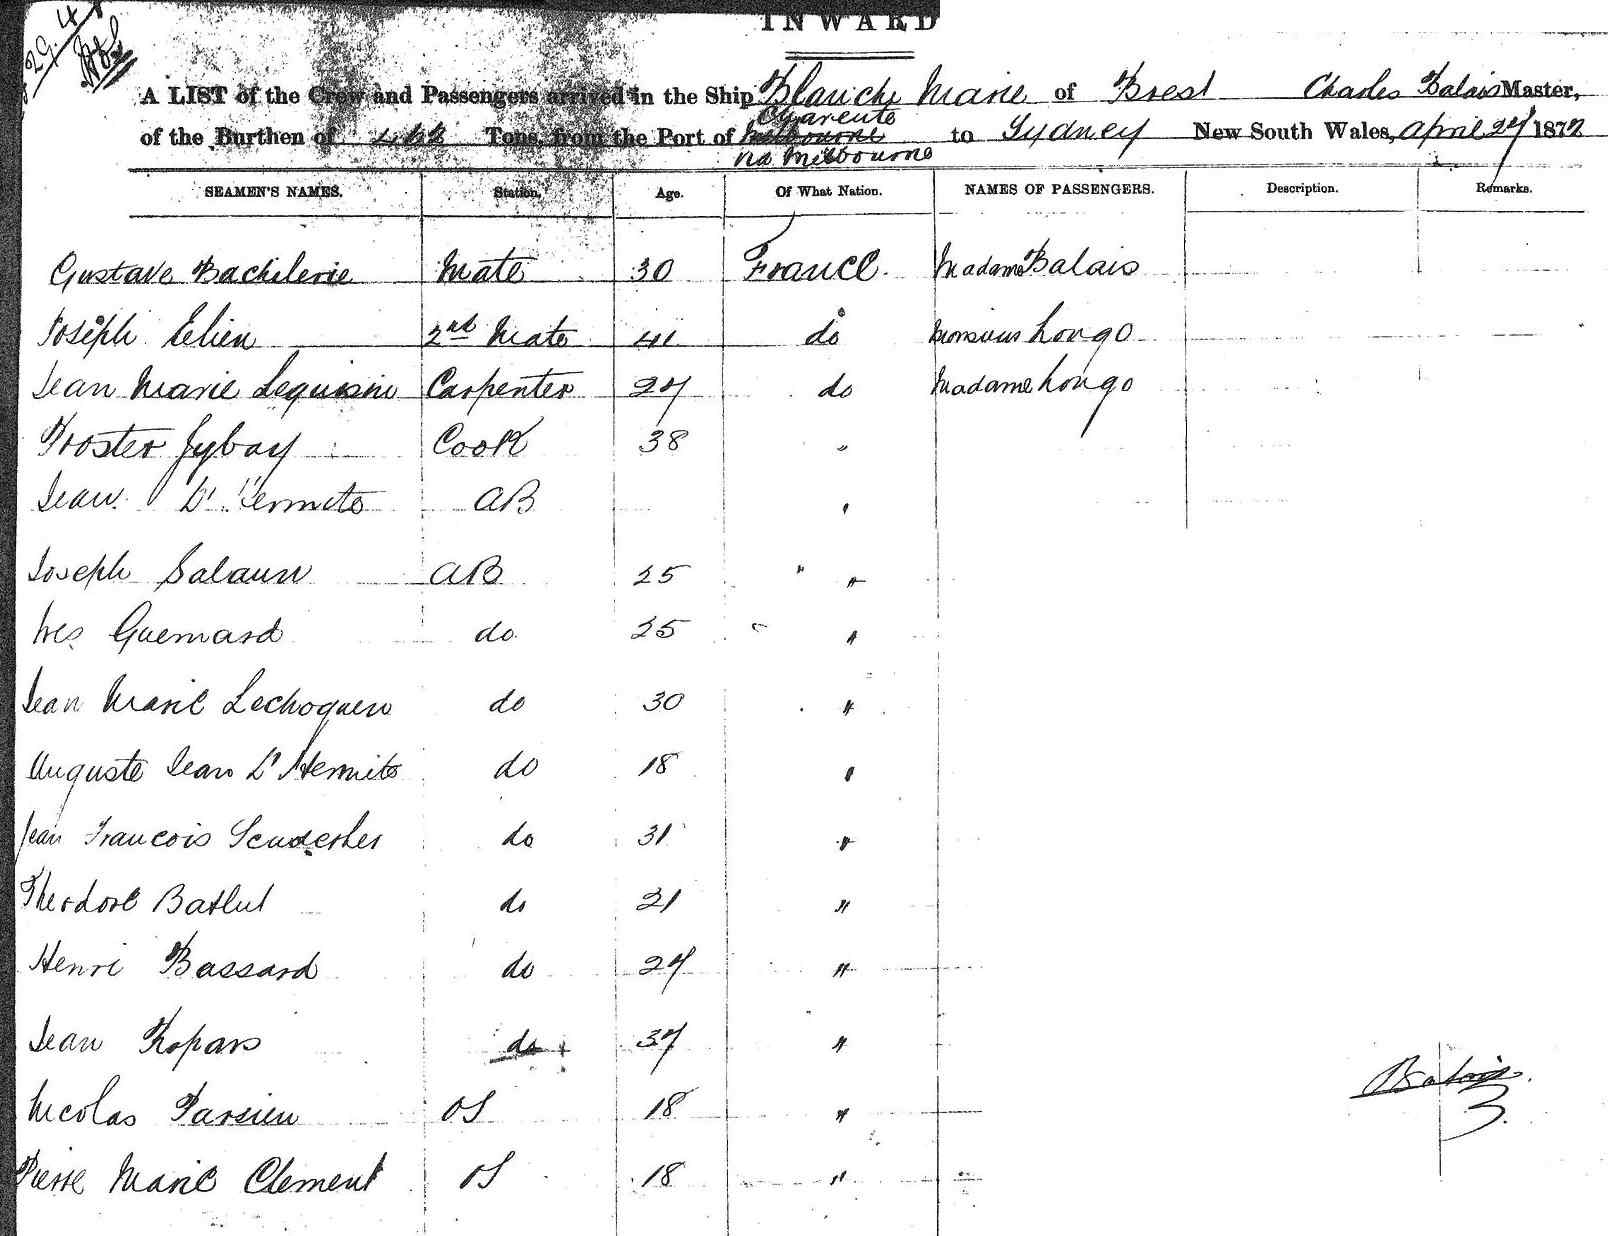 INWARD
A LIST of the Crew and Passengers arrived in the Ship Blanche Marie of Brest Charles Balais Master,
Charente
of the Burthen of Tons, from the Port of Melbourne to Sydney New South Wales, April 27 1872
via Melbourne
SEAMEN'S NAMES. Station. Age. Of What Nation. NAMES OF PASSENGERS. Description. Remarks.
Gustave Bachelerie Mate 30 France. Madame Balais
Joseph Elien 2nd Mate 41 do Monsieur Longo
Jean Marie Carpenter 27 do Madame Longo
Cook 38 "
Jean L'Hermite AB "
Joseph Salaun AB 25 " "
Yves Guemard do 25 "
Jean Marie Lechoquen do 30 "
Auguste Jean L'Hermite do 18 "
Jean Francois do 31 "
Theodore Batlut do 21 "
Henri Bassard do 27 "
Jean Ropars do 37 "
Nicolas Parsien OS 18 "
Pierre Marie Clement OS 18 "
Balais